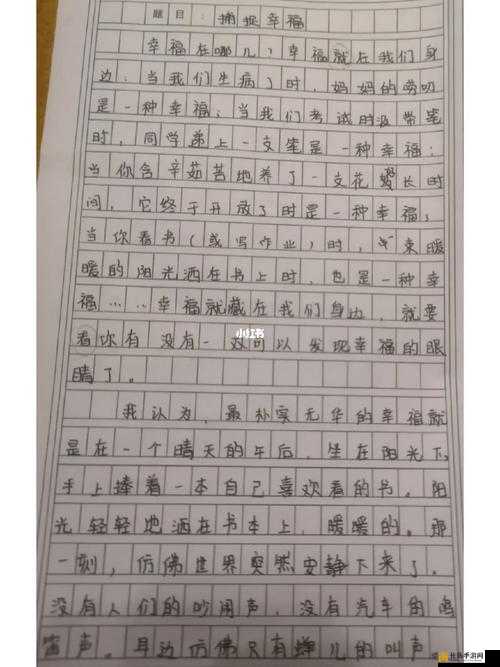 题目：捕捉幸福
幸福在哪儿？幸福就在我们身
边：当我们生病了时，妈妈的劳叨
是一种幸福；当我们考试时没带笔
时，同学递上一支笔是一种幸福；
当你含辛茹苦地养了一支花 长时
间，它终于开放了时是一种幸福；
当你看书（或写作业）时，一束暖
暖的阳光洒在书上时，也是一种幸
福……幸福就藏在我们身边，就要
看你有没有一双可以发现幸福的眼
睛了。
小红书
我认为，最朴实无华的幸福就
是在一个晴天的午后，坐在阳光下，
手上捧着一本自己喜欢看的书。阳
光轻轻地洒在书本上，暖暖的。那
一刻，仿佛世界突然安静下来了。
没有人们的吵闹声，没有汽车的鸣
笛声。耳边仿佛只有蝉儿的叫声